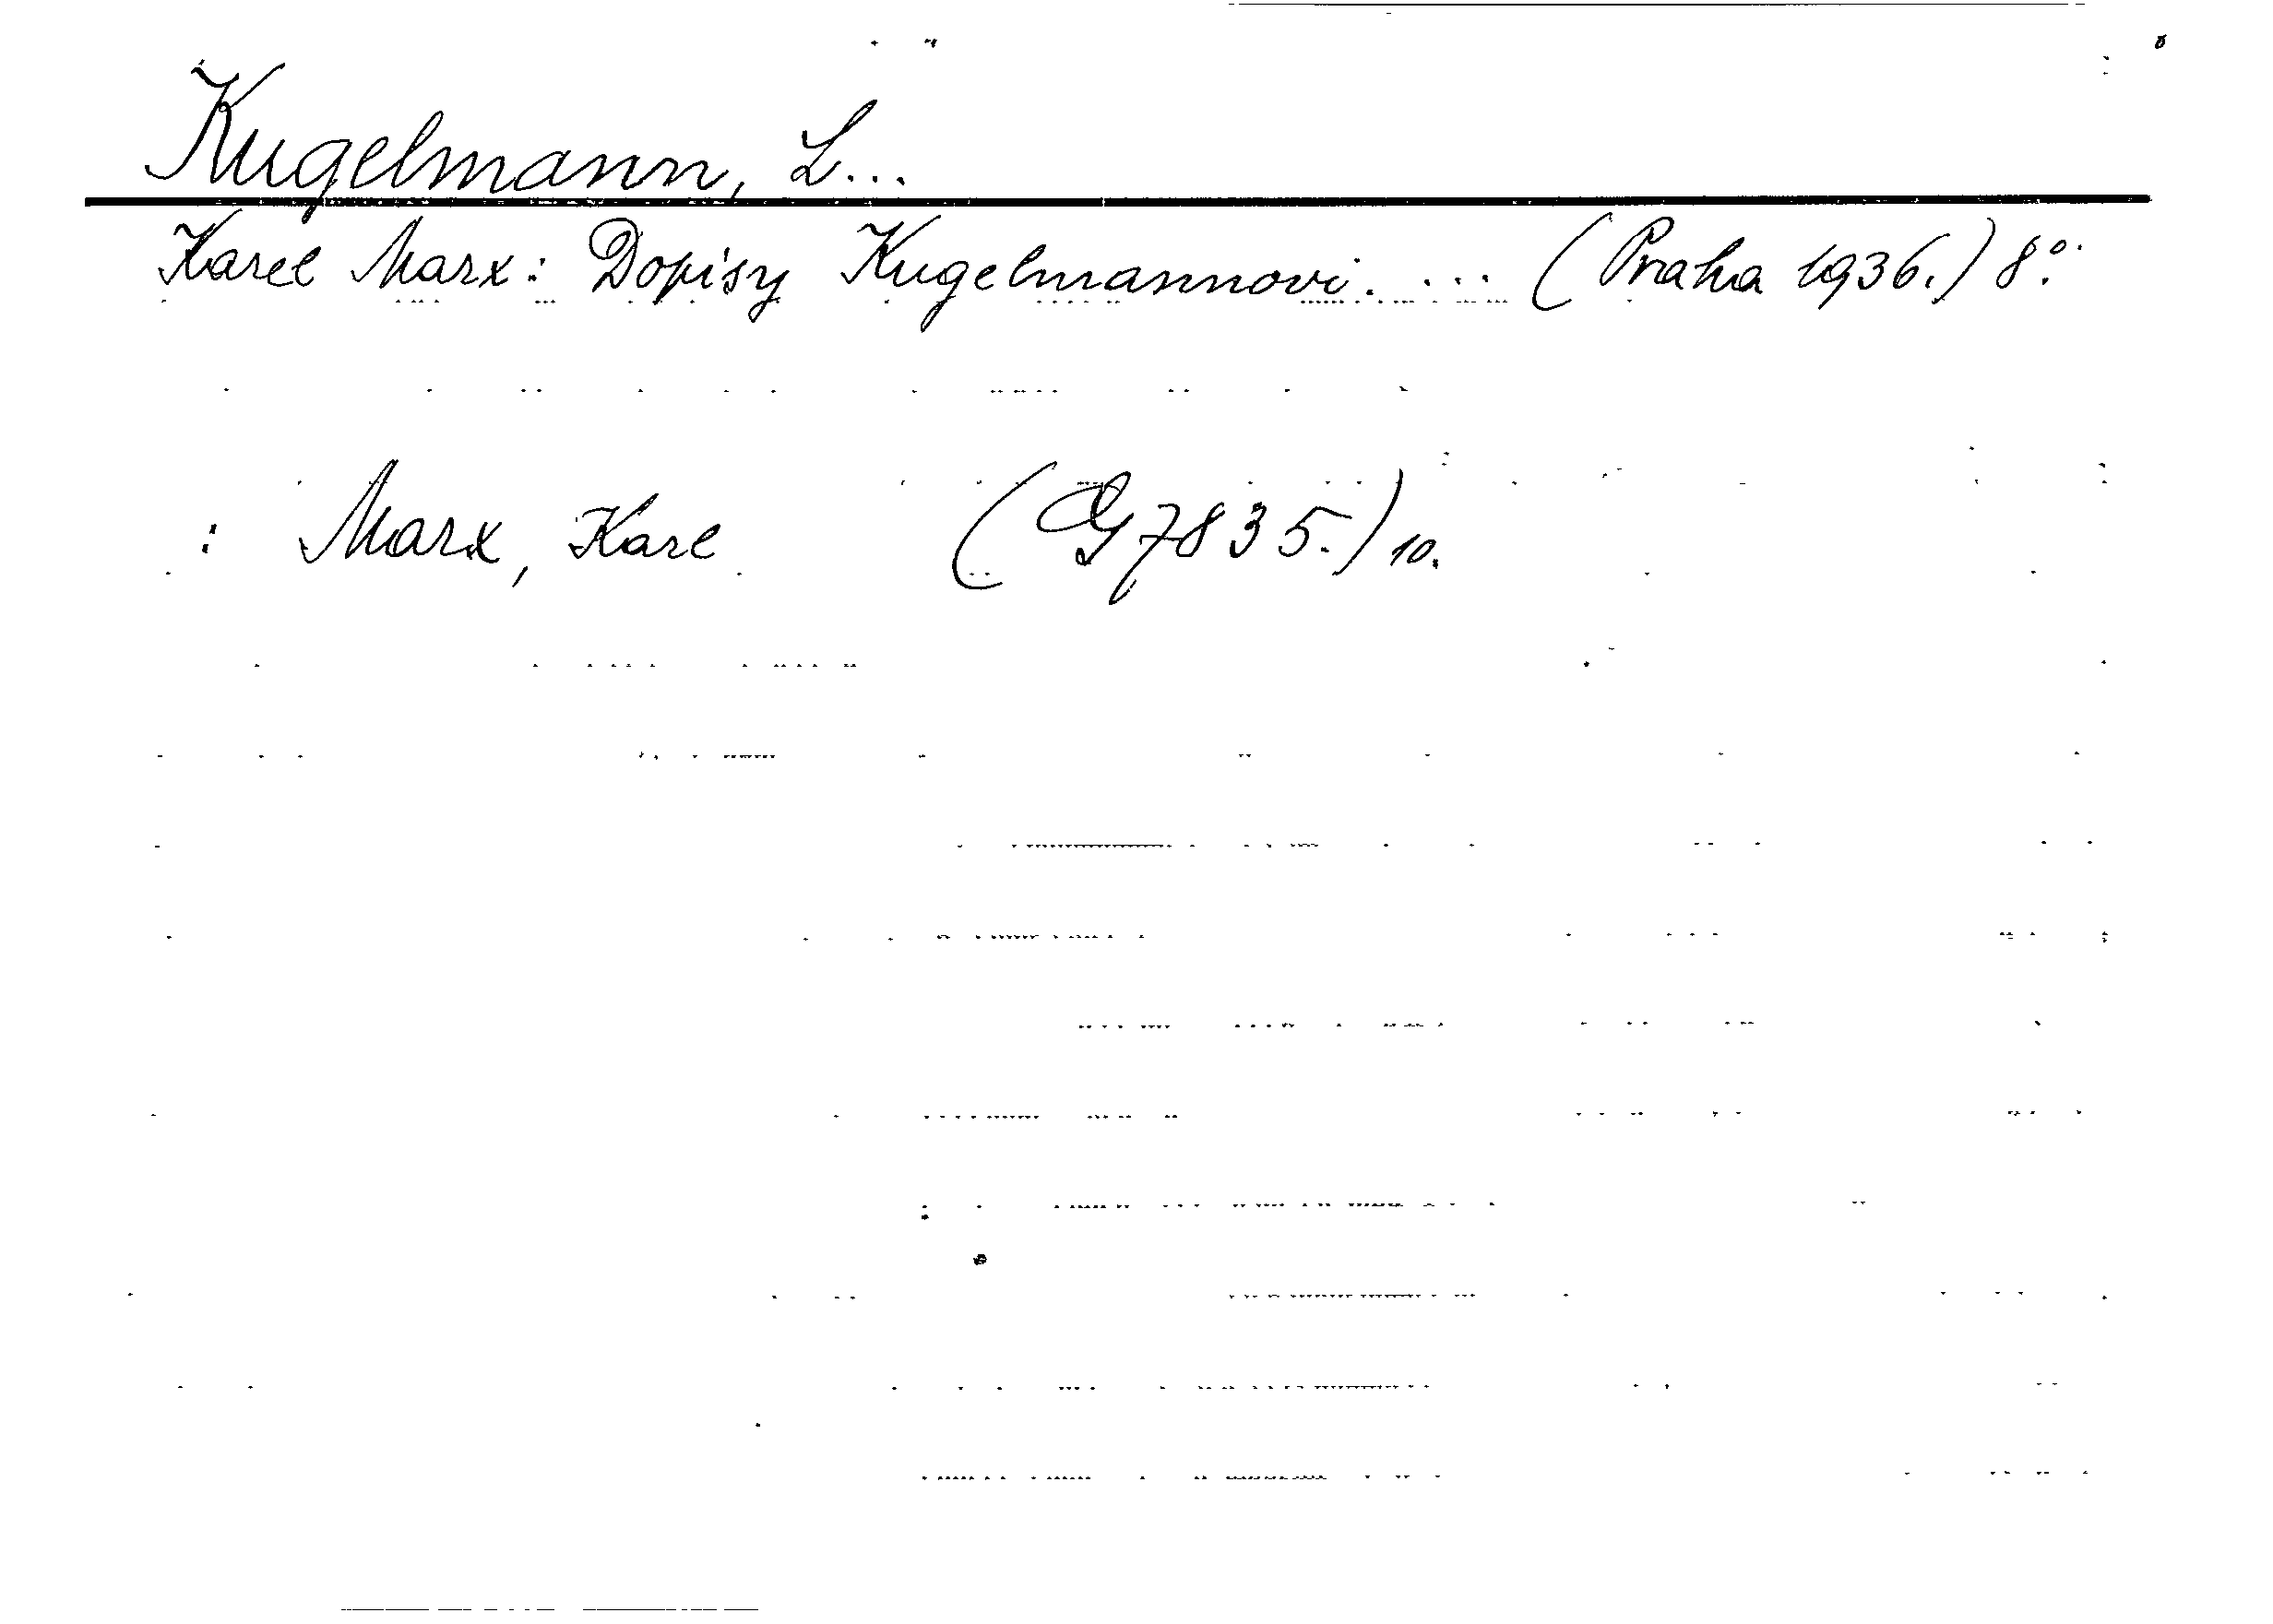 Kugelmann, L...
Karel Marx: Dopisy Kugelmannovi. ... (Praha 1936.) 8°.
: Marx, Karl (G 7835.) 10.